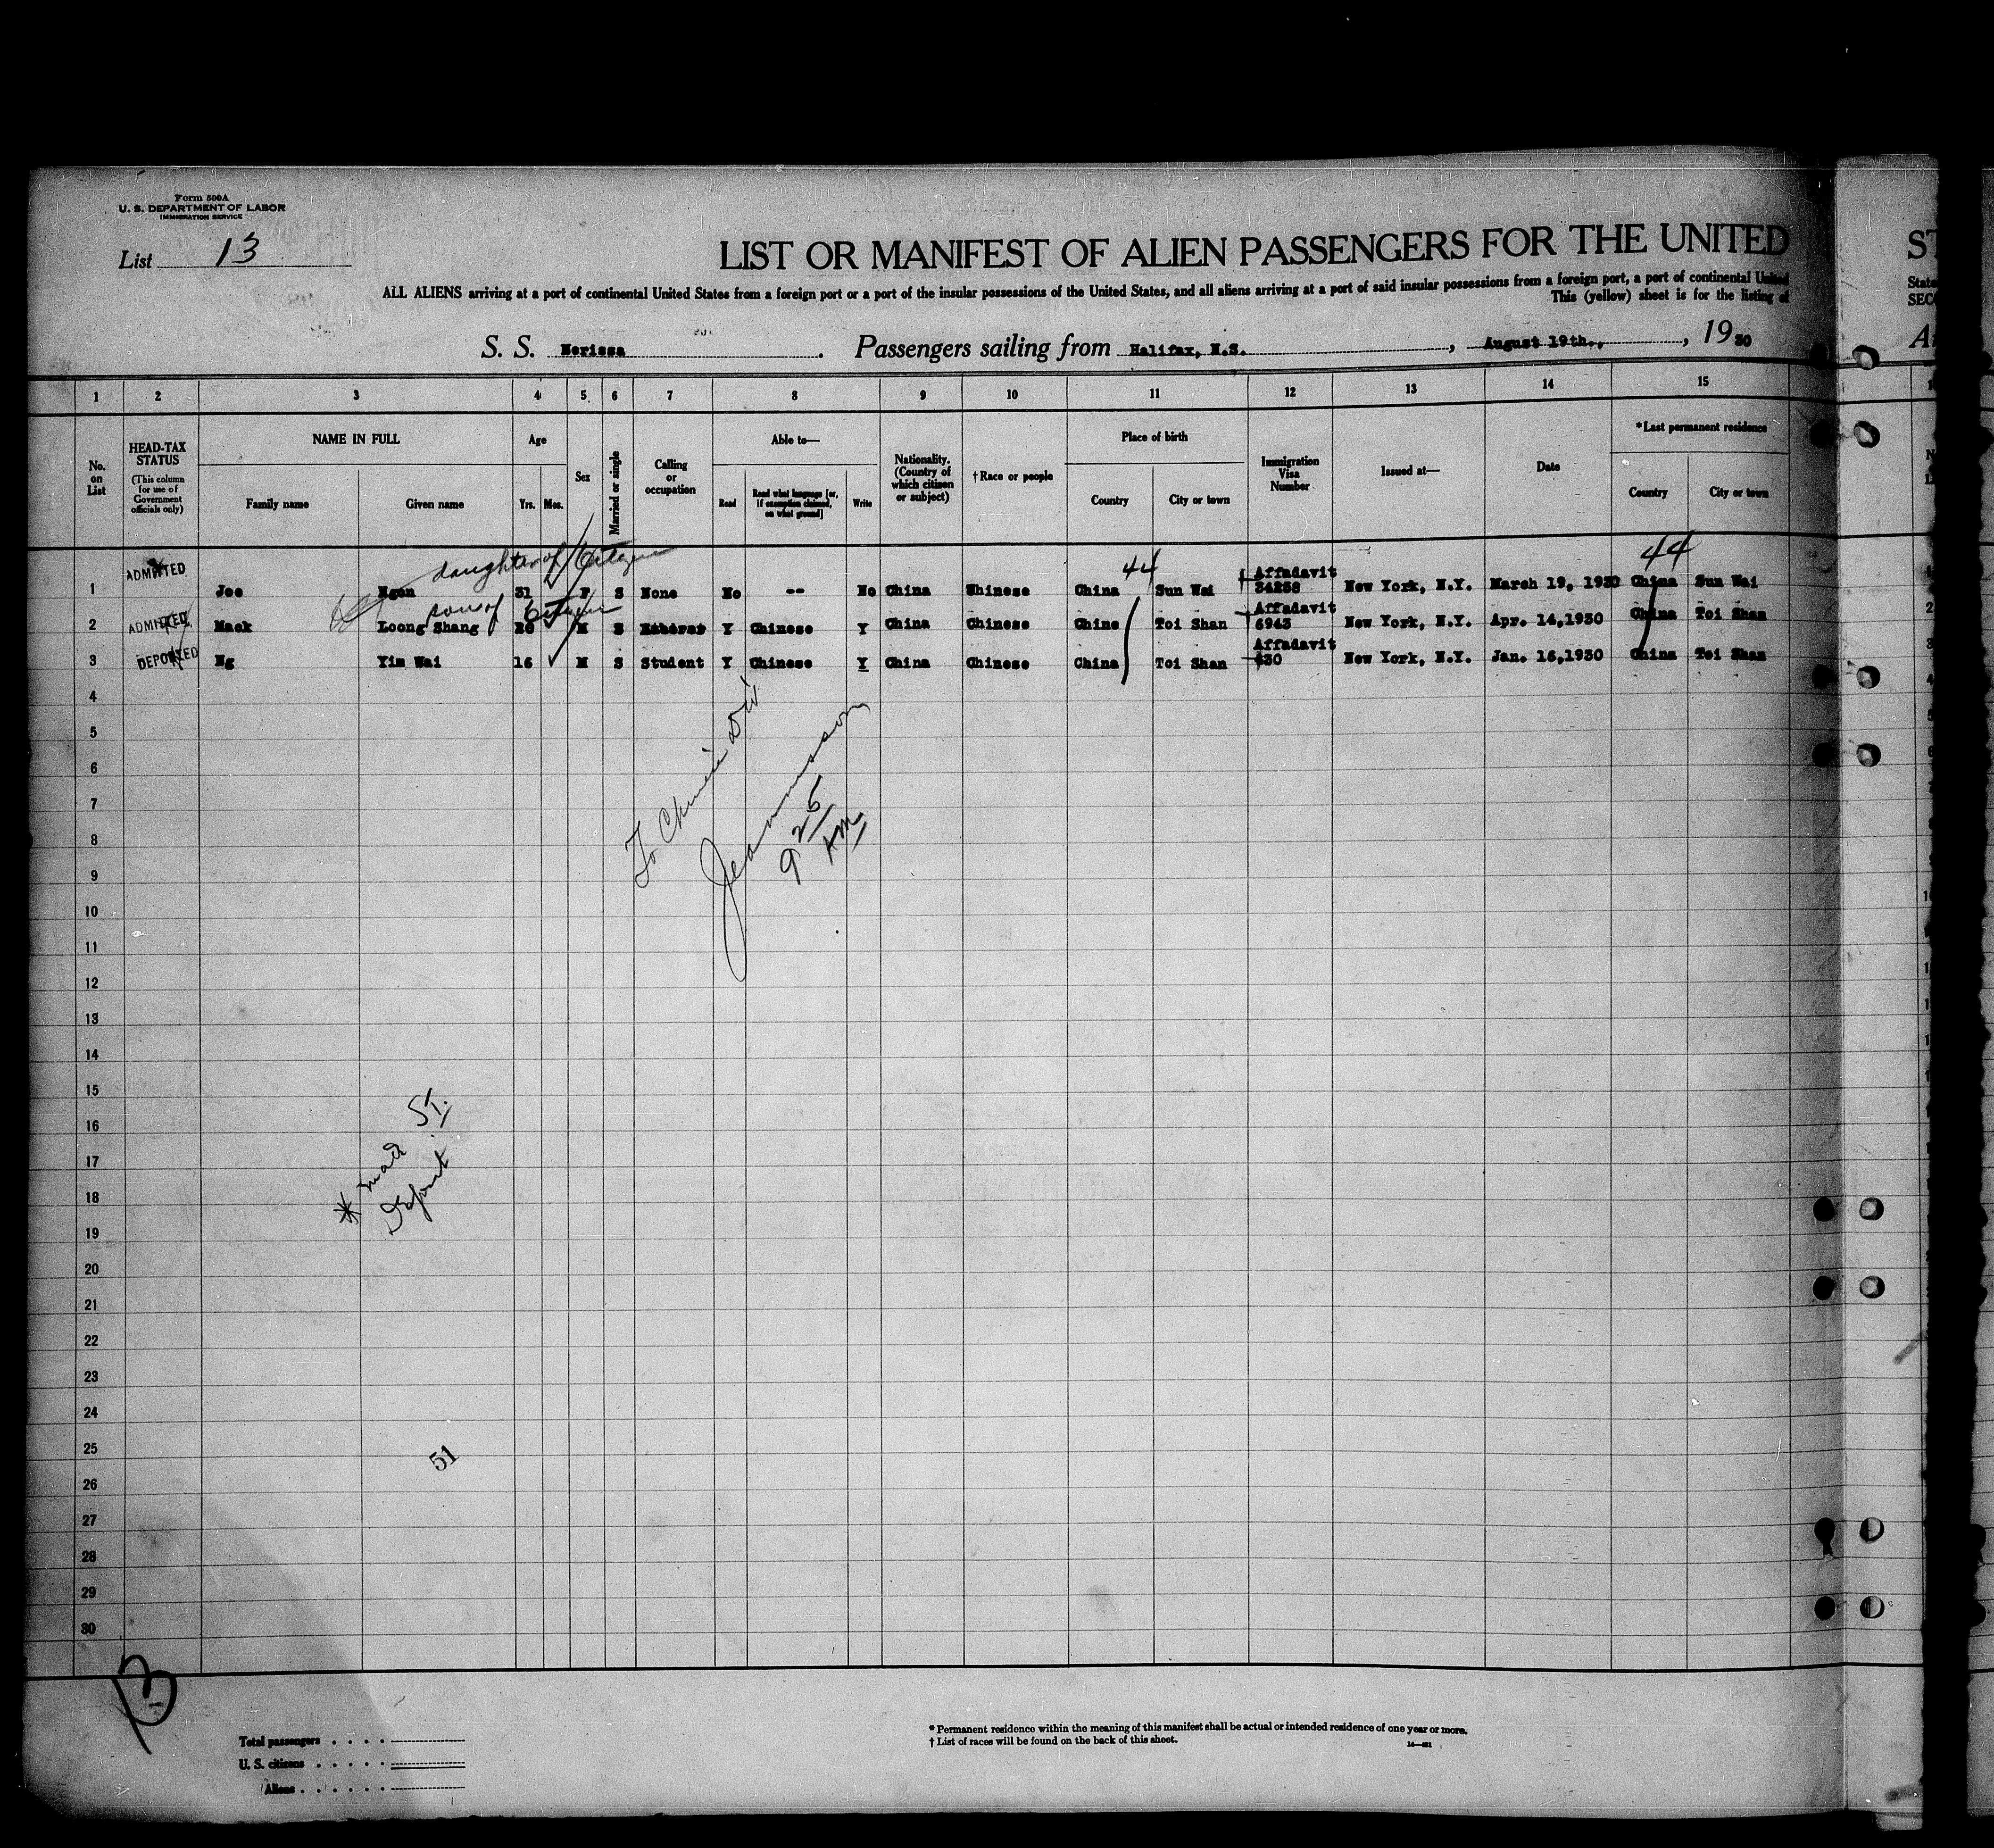 Form 500A
U. S. DEPARTMENT OF LABOR
IMMIGRATION SERVICE
List 13
LIST OR MANIFEST OF ALIEN PASSENGERS FOR THE UNITED
ST
ALL ALIENS arriving at a port of continental United States from a foreign port or a port of the insular possessions of the United States, and all aliens arriving at a port of said insular possessions from a foreign port, a port of continental United
State
This (yellow) sheet is for the listing of
SEC
S. S. Nerissa . Passengers sailing from Halifax, N.S. , August 19th., , 19 30
1 2 3 4 5 6 7 8 9 10 11 12 13 14 15
No. on List
HEAD-TAX STATUS
(This column for use of Government officials only)
NAME IN FULL
Family name Given name
Age
Yrs. Mos.
Sex
Married or single
Calling or occupation
Able to—
Read
Read what language [or, if exemption claimed, on what ground]
Write
Nationality. (Country of which citizen or subject)
†Race or people
Place of birth
Country City or town
Immigration Visa Number
Issued at—
Date
*Last permanent residence
Country City or town
daughter of Citizen
44 44
1 ADMITTED Joe Ngon 31 F S None No -- No China Chinese China Sun Wai Affadavit 34258 New York, N.Y. March 19, 1930 China Sun Wai
son of Citizen
2 ADMITTED Mack Loong Shang M S Y Chinese Y China Chinese Chine Toi Shan Affadavit 6943 New York, N.Y. Apr. 14,1930 China Toi Shan
3 DEPORTED Ng Yim Wai 16 M S Student Y Chinese Y China Chinese China Toi Shan Affadavit 430 New York, N.Y. Jan. 16,1930 China Toi Shan
4
5
6
7
8
9
10
11
12
13
14
15
16
17
18
19
20
21
22
23
24
25
26
27
28
29
30
To
9 25
AM
S.I.
51
13
Total passengers
U. S. citizens
Aliens
* Permanent residence within the meaning of this manifest shall be actual or intended residence of one year or more.
† List of races will be found on the back of this sheet.